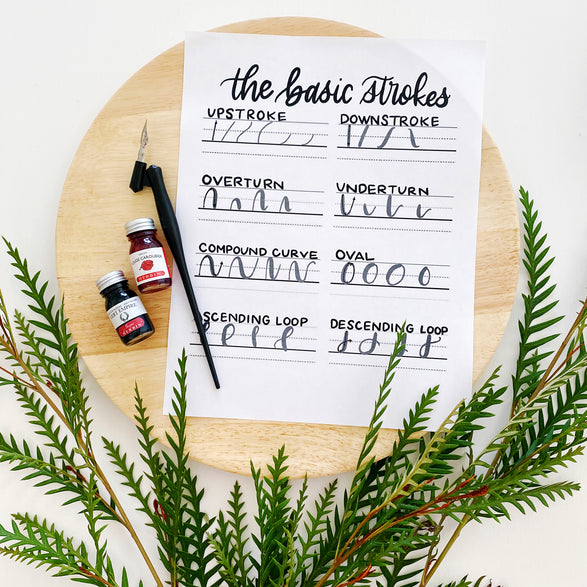 the basic strokes
UPSTROKE DOWNSTROKE
OVERTURN UNDERTURN
COMPOUND CURVE OVAL
SCENDING LOOP DESCENDING LOOP
ROUGE CAROUBIER
HERBIN
EMPIRE
HERBIN